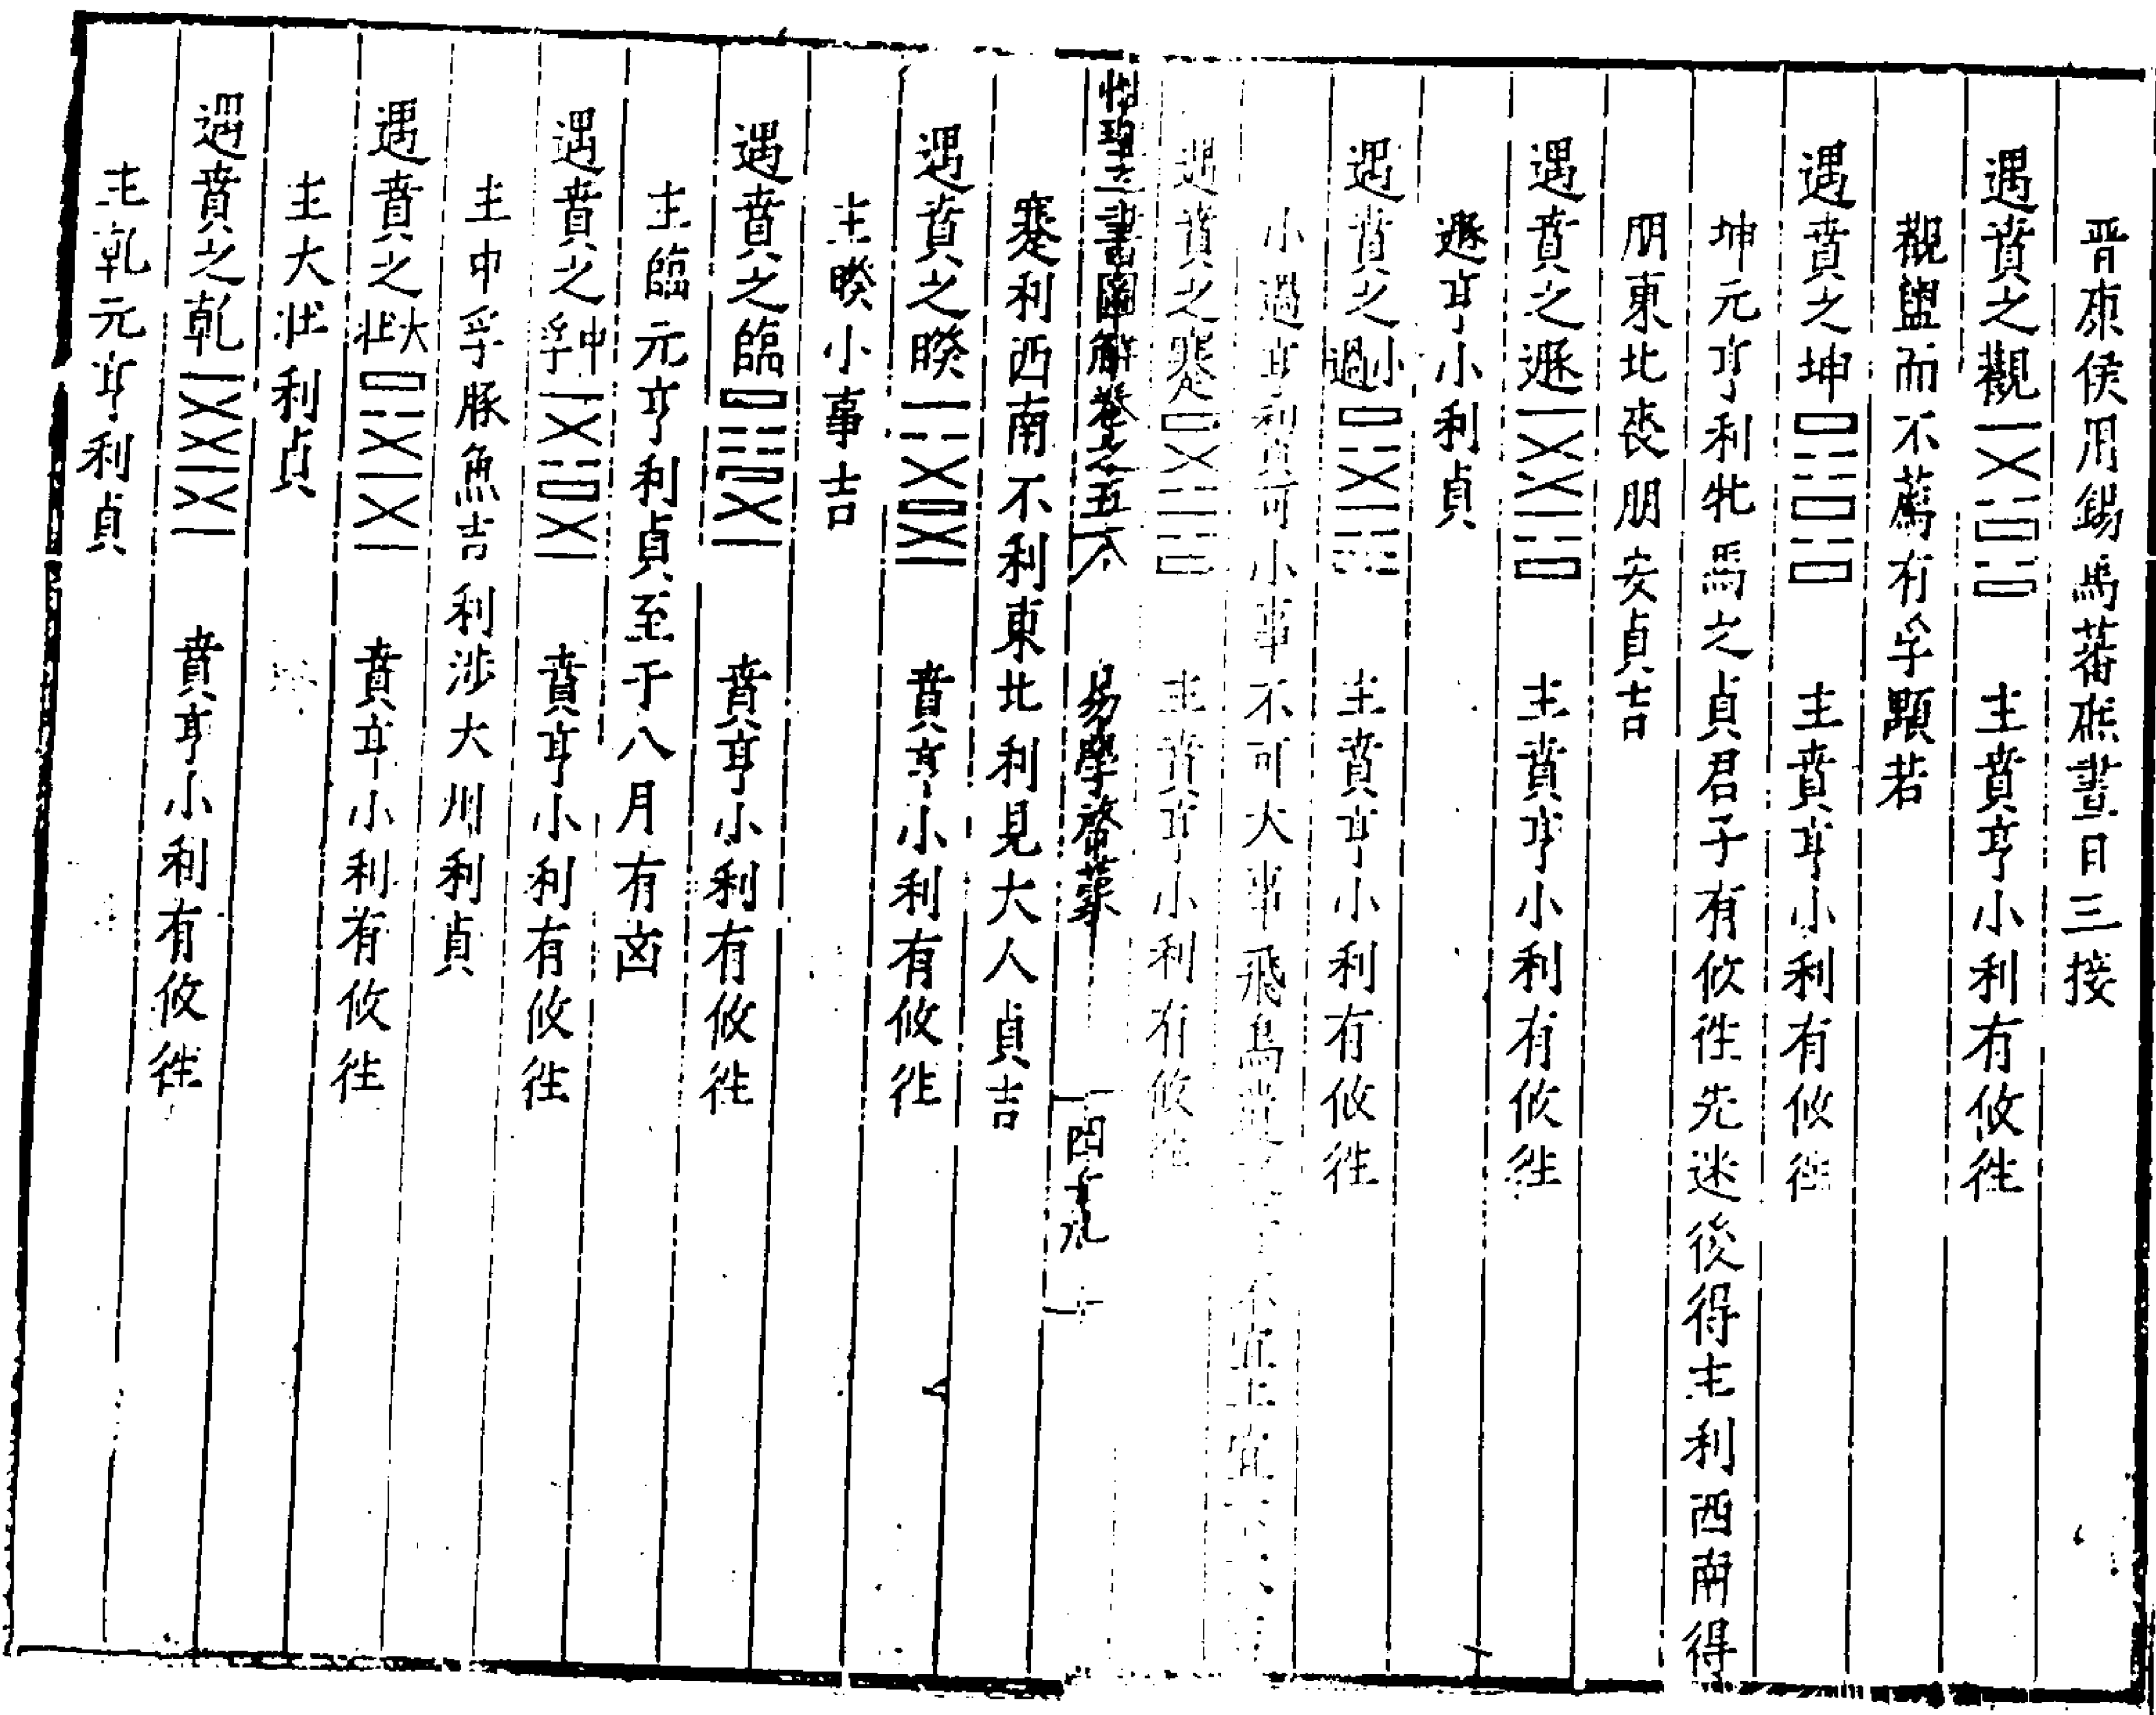 晋康侯用錫馬蕃庶晝日三接
遇賁之觀 主賁亨小利有攸徃
觀盥而不薦有孚顒若
遇賁之坤 主賁亨小利有攸徃
坤元亨利牝馬之貞君子有攸徃先迷後得主利西南得
朋東北喪朋安貞吉
遇賁之遯 主賁亨小利有攸徃
遯亨小利貞
遇賁之小過 主賁亨小利有攸徃
小過亨利貞可小事不可大事飛鳥遺 不宜上宜
遇賁之蹇 主賁亨小利有攸徃
性理三書圖解卷之五六 易學啓蒙 四十九
蹇利西南不利東北利見大人貞吉
遇賁之睽 賁亨小利有攸徃
主睽小事吉
遇賁之臨 賁亨小利有攸徃
主臨元亨利貞至于八月有凶
遇賁之中孚 賁亨小利有攸徃
主中孚豚魚吉利涉大川利貞
遇賁之大壯 賁亨小利有攸徃
主大壯利貞
遇賁之乾 賁亨小利有攸徃
主乾元亨利貞